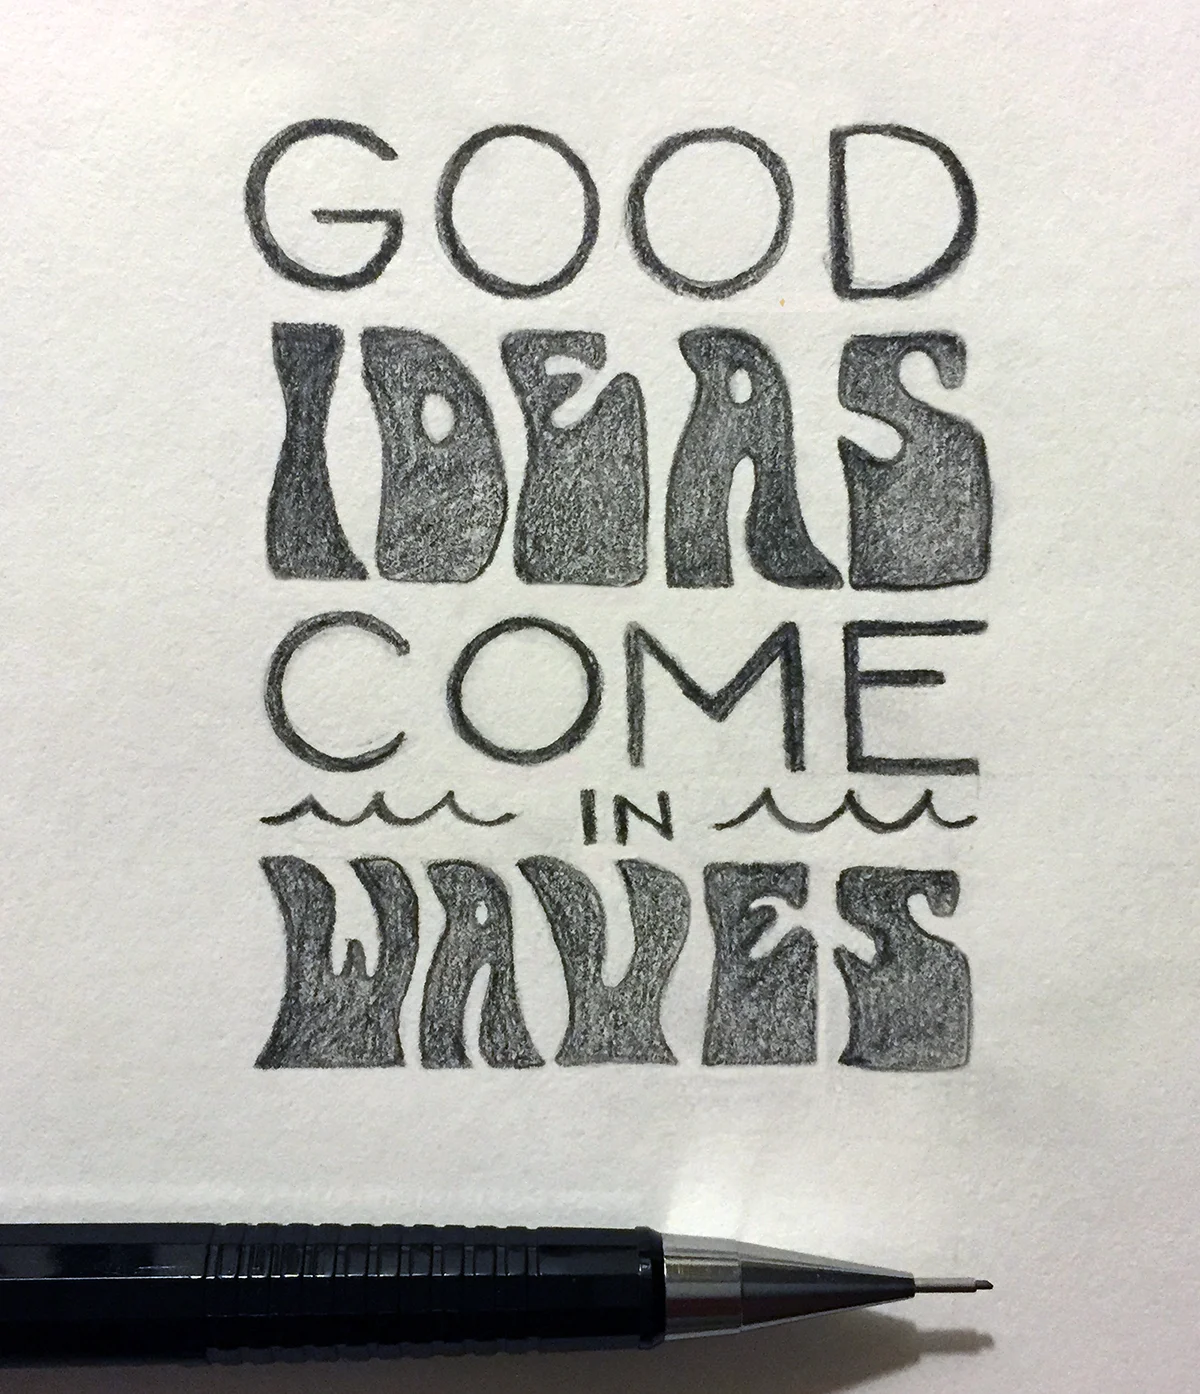 GOOD
IDEAS
COME
IN
WAVES